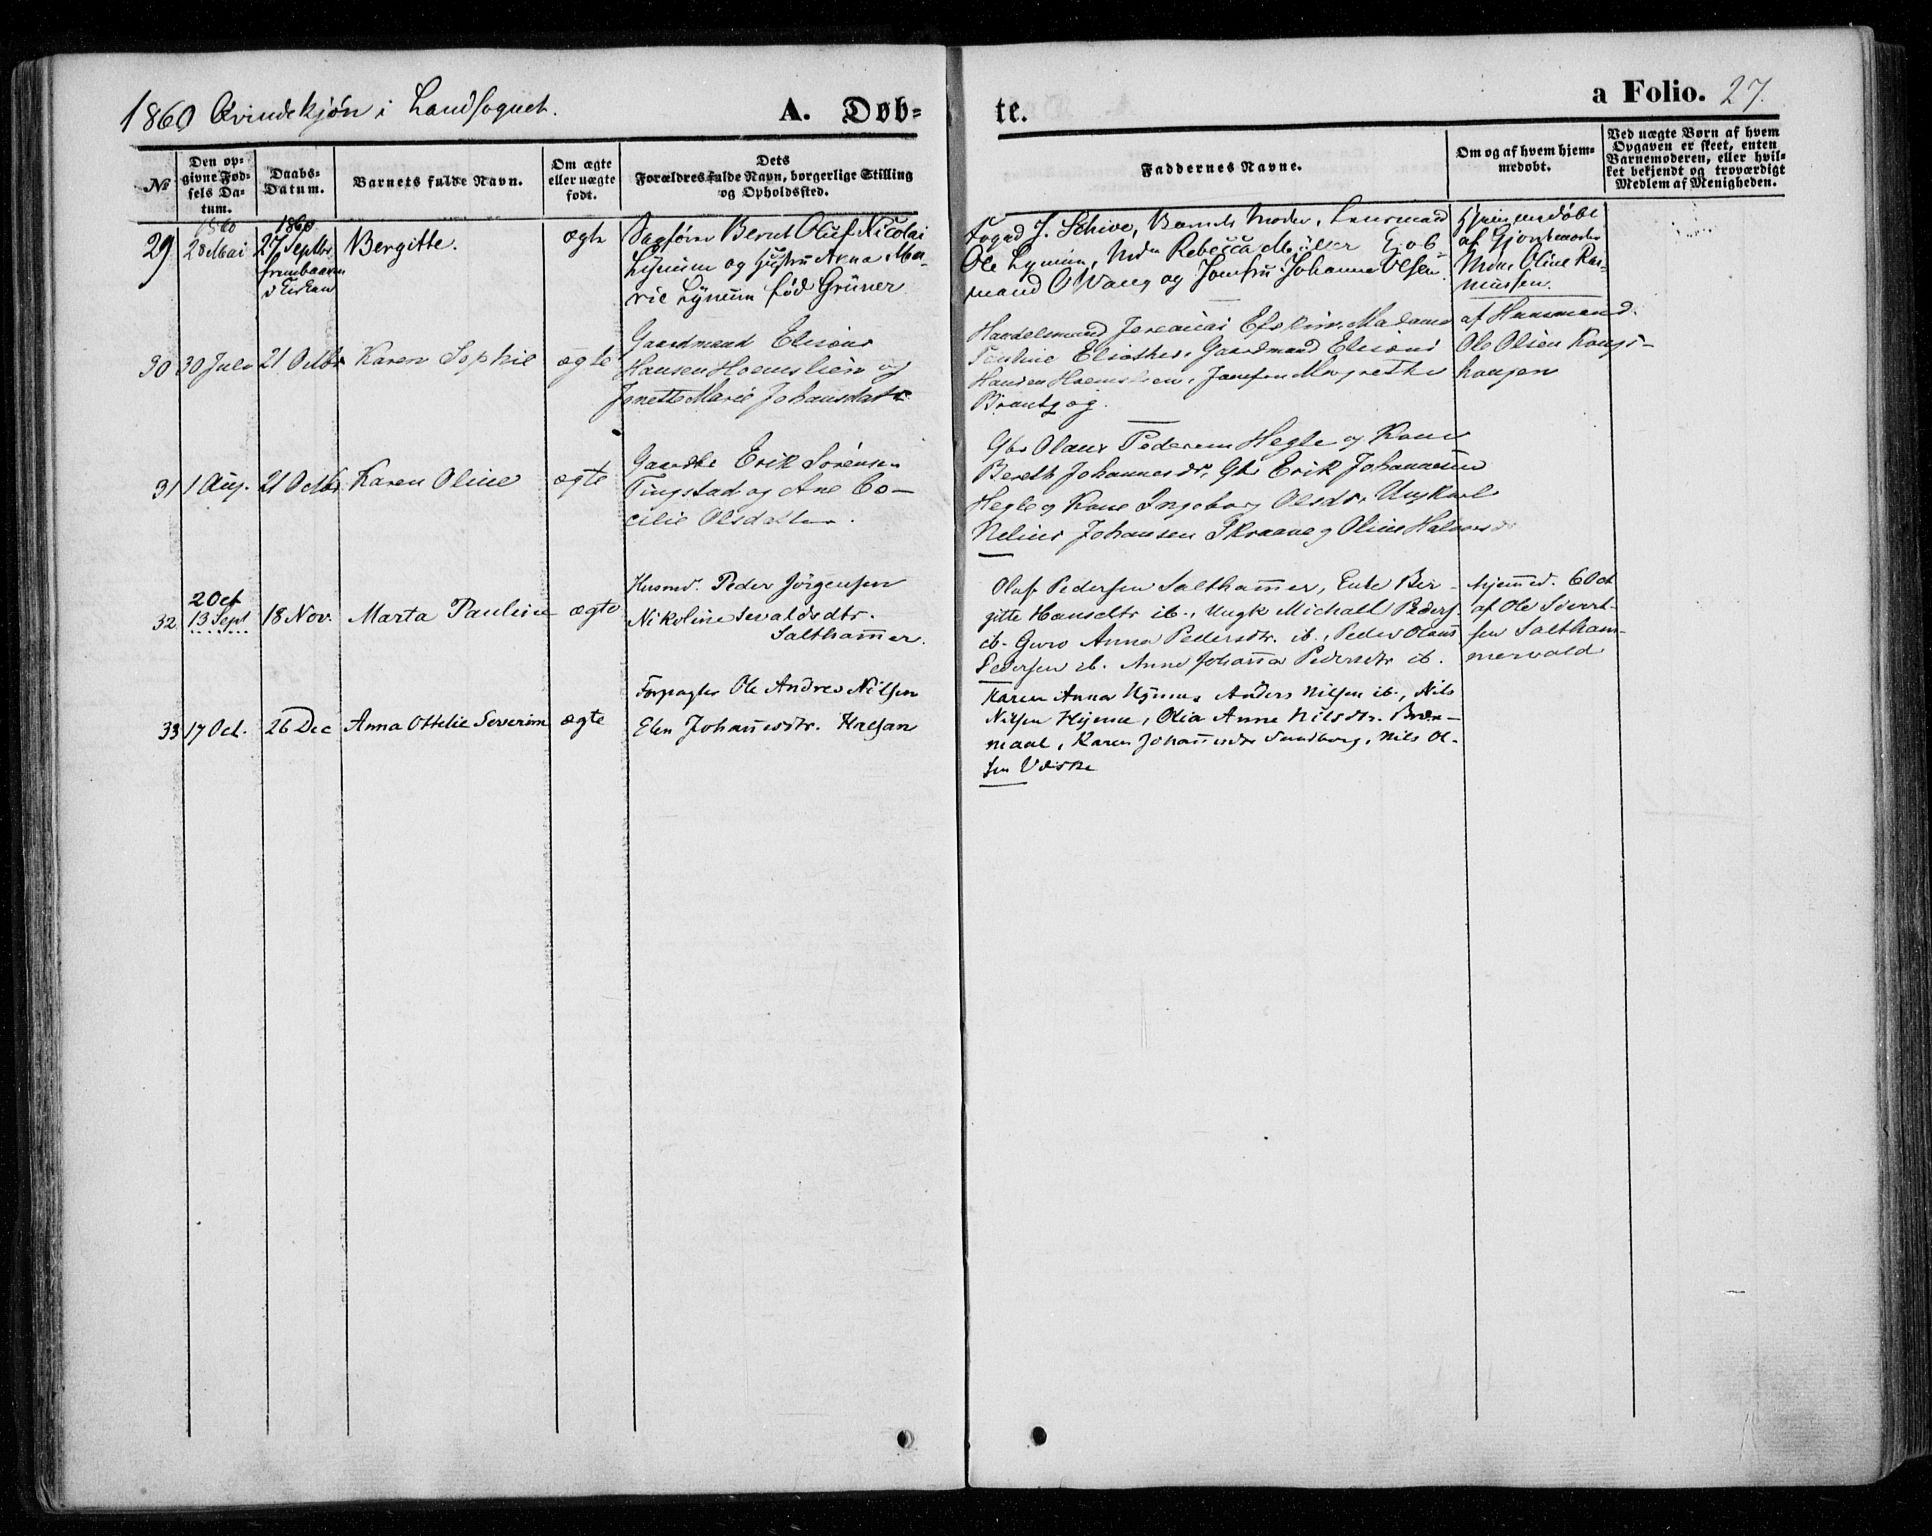 1860 Qvindekjøn i Landsognet.
A. Døb-
te.
a Folio. 27.
No
Den op-
givne Fød-
sels Da-
tum.
Daabs-
Datum.
Barnets fulde Navn.
Om ægte
eller uægte
født.
Dets
Forældres fulde Navn, borgerlige Stilling
og Opholdssted.
Faddernes Navne.
Om og af hvem hjem-
medøbt.
Ved uægte Børn af hvem
Opgaven er skeet, enten
Barnemoderen, eller hvil-
ket bekjendt og troværdigt
Medlem af Menigheden.
29
1860
28 Mai
1860
27 Septbr
frembaaren
i Kirken
Bergitte.
ægte
Sagfører Bernt Oluf Nicolai
Lynum og Hustru Anna Ma-
rie Lynum fød Grüner
Foged J. Schive, Barnets Moder, Lensmand
Ole Lynum, Mdm Rebecca Müller Kjøb-
mand O Vang og Jomfru Johanna Olsen
Hjemmedøbt
af Gjordemoder
Mdm Oline Ras-
mussen.
30
30 Juli
21 Octbr
Karen Sophie
ægte
Gaardmand Elisæus
Hansen Hoemslien og
Jonette Marie Johansdatr
Handelsmand Jeremias Madame
Pauline Gaardmand Elisæus
Hansen Hoemslien, Jomfru Margrethe
Brantzog.
af Huusmand
Ole Olsen Kongs-
haugen
31
1 Aug.
21 Octbr
Karen Oline
ægte
Gaardbr Erik Sørensen
Tingstad og Ane Ce-
cilie Olsdatter.
Gbr Olaus Pedersen Hegle og Kone
Bereth Johannesdr, Gbr Erik Johannesen
Hegle og Kone Ingeborg Olsdr, Ungkarl
Nelius Johansen Skraane og Oline Halvorsdr
32
2 Oct
13 Sept
18 Nov.
Marta Pauline
ægte
Husmd. Peder Jörgensen
Nikoline Sevaldsdtr.
Salthamer.
Olaf Pedersen Salthamer, Enke Ber-
gitte Hansdtr ib., Ungk Michall Peders.
ib. Guro Anna Pedersdtr. ib., Peder Olaus
Pedersen ib. Anne Johanna Pedersdtr ib.
hjemd. 6 Oct
af Ole Sivert-
sen Saltham-
mervald
33
17 Oct.
26 Dec
Anna Ottelie Severine
ægte
Forpagter Ole Andreas Nilsen
Elen Johannesdtr. Halsan
Karen Anna Hynne, Anders Nilsen ib., Nils
Nilsen Hynne, Olia Anne Nilsdtr. Bræn-
maal, Karen Johannesdtr Sundborg, Nils Ol-
sen Vaske